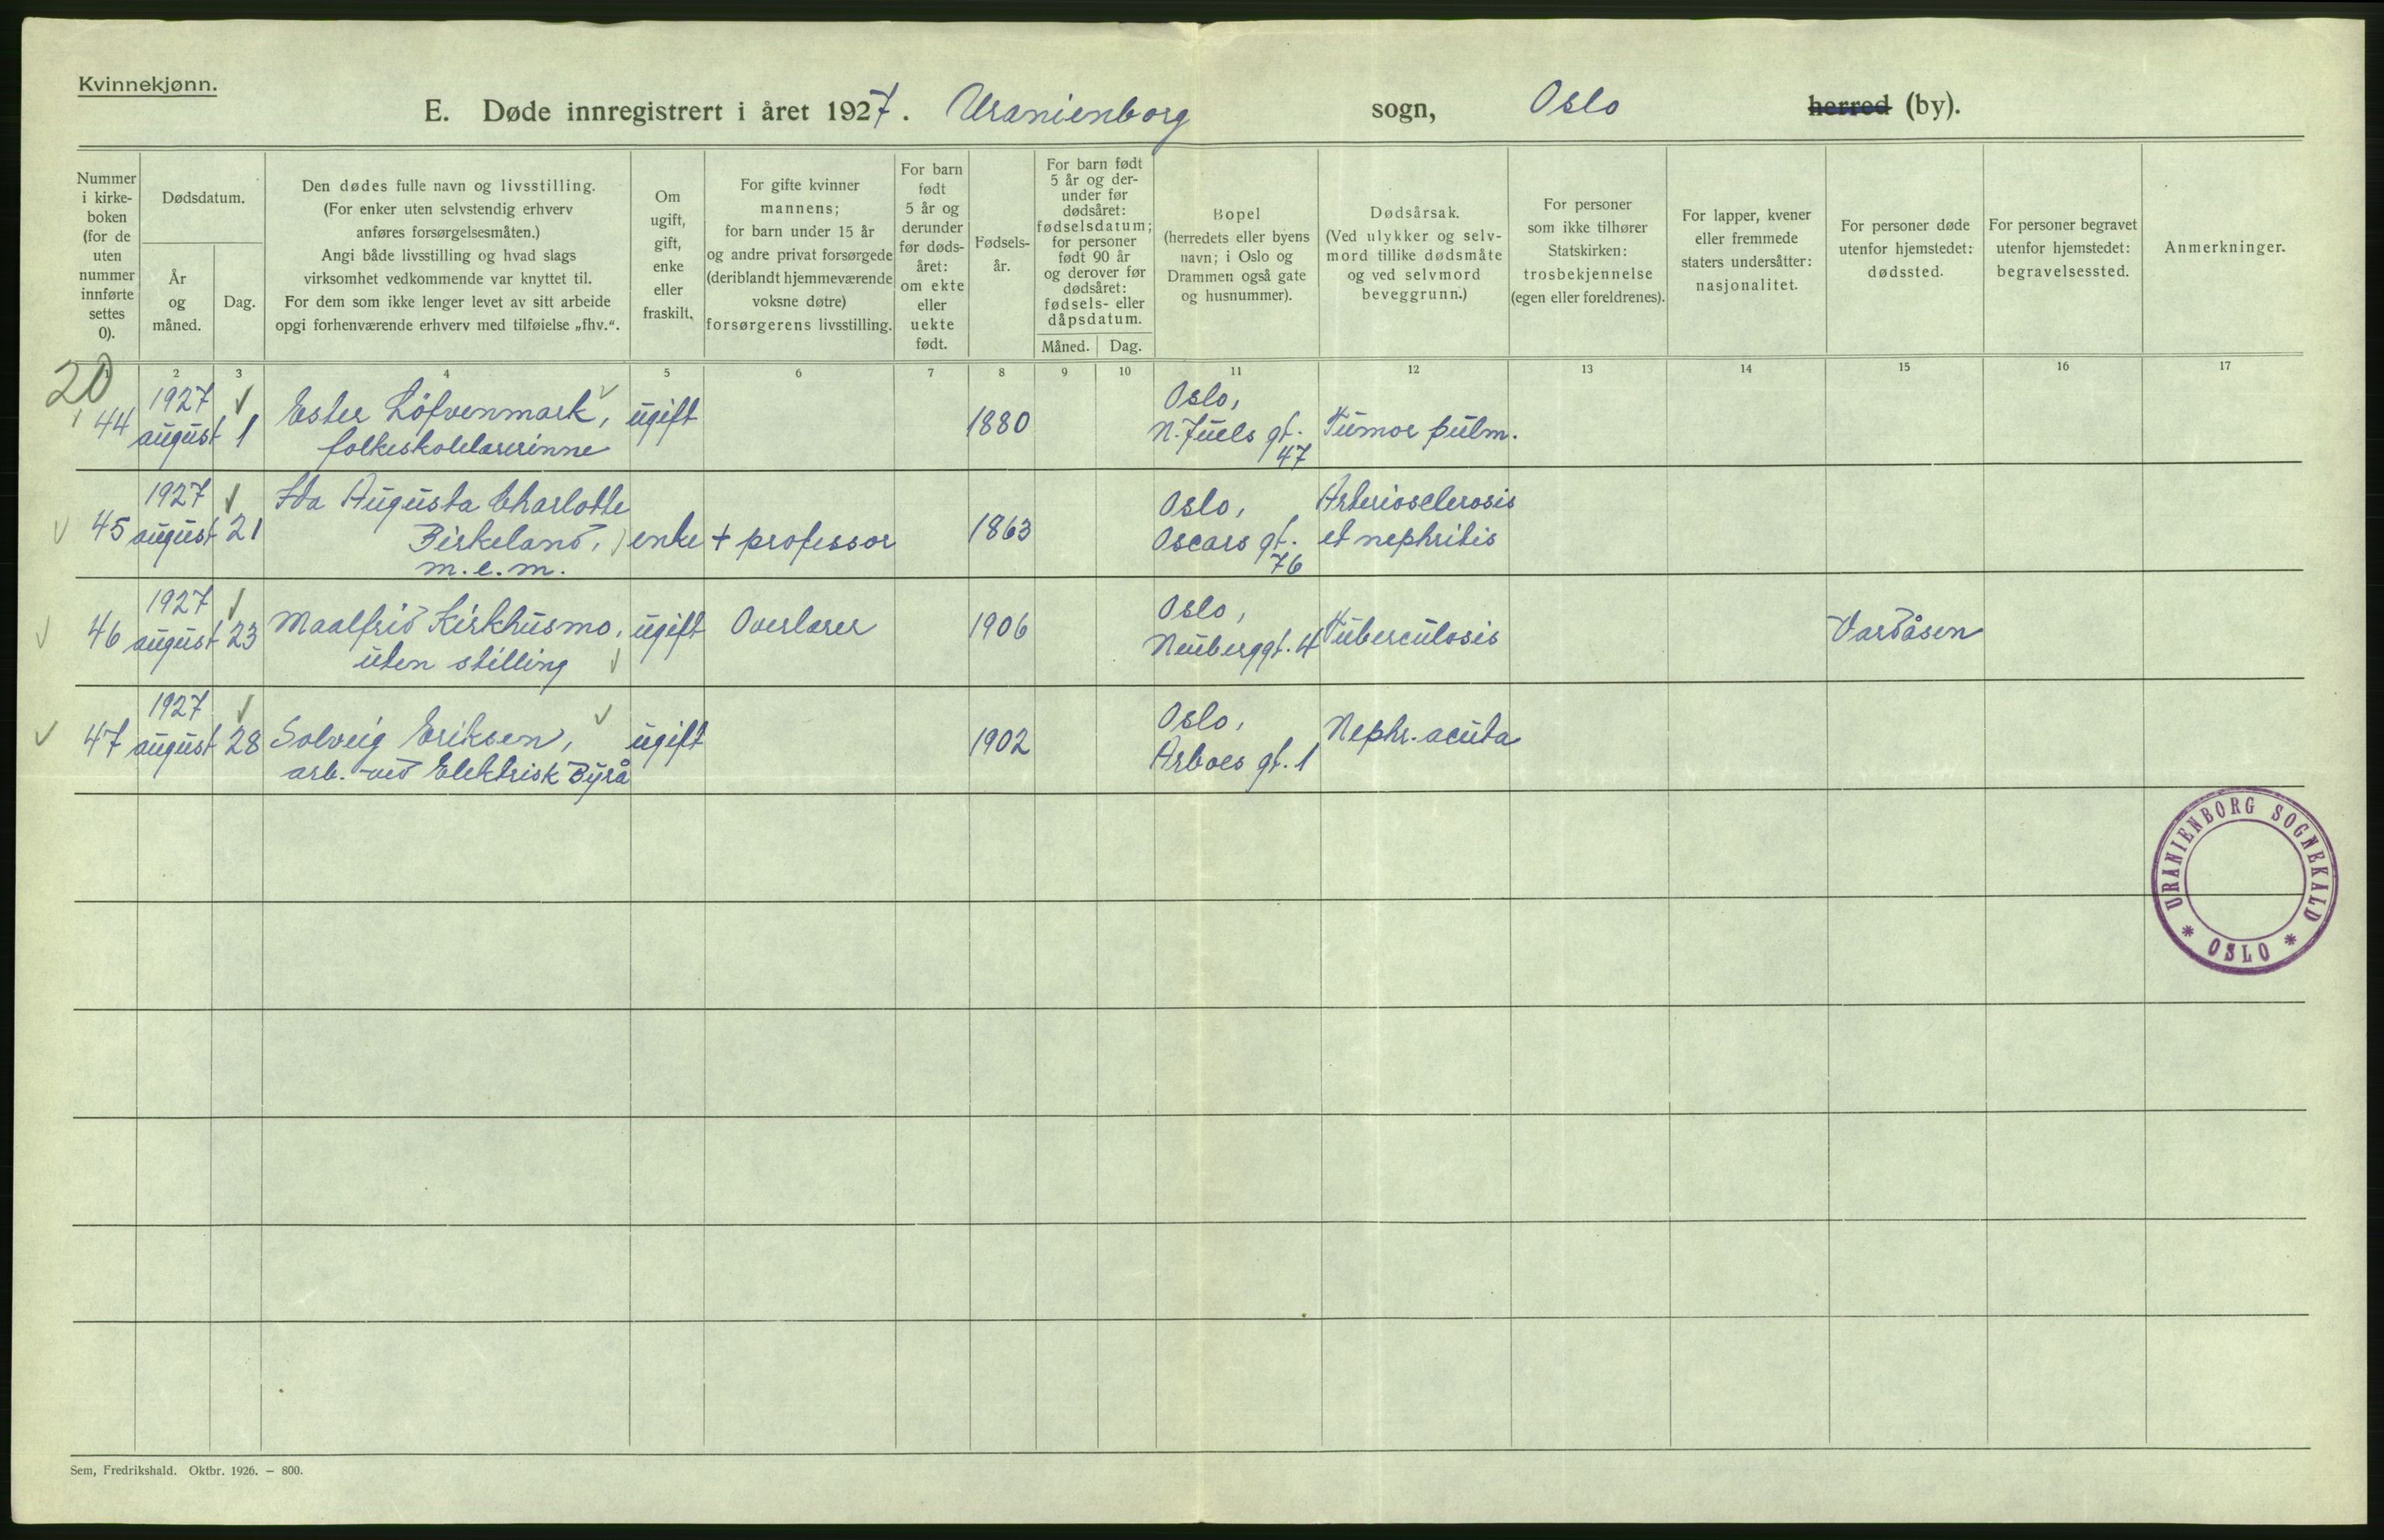 Kvinnekjønn.
E. Døde innregistrert i året 1927. Uranienborg sogn, Oslo herred (by).
Nummer
i kirke-
boken
(for de
uten
nummer
innførte
settes
0).
Dødsdatum.
År
og
måned.
Dag.
Den dødes fulle navn og livsstilling.
(For enker uten selvstendig erhverv
anføres forsørgelsesmåten.)
Angi både livsstilling og hvad slags
virksomhet vedkommende var knyttet til.
For dem som ikke lenger levet av sitt arbeide
opgi forhenværende erhverv med tilføielse „fhv.“.
Om
ugift,
gift,
enke
eller
fraskilt.
For gifte kvinner
mannens;
for barn under 15 år
og andre privat forsørgede
(deriblandt hjemmeværende
voksne døtre)
forsørgerens livsstilling.
For barn
født
5 år og
derunder
før døds-
året:
om ekte
eller
uekte
født.
Fødsels-
år.
For barn født
5 år og der-
under før
dødsåret:
fødselsdatum;
for personer
født 90 år
og derover før
dødsåret:
fødsels- eller
dåpsdatum.
Måned.
Dag.
Bopel
(herredets eller byens
navn; i Oslo og
Drammen også gate
og husnummer).
Dødsårsak.
(Ved ulykker og selv-
mord tillike dødsmåte
og ved selvmord
beveggrunn.)
For personer
som ikke tilhører
Statskirken:
trosbekjennelse
(egen eller foreldrenes).
For lapper, kvener
eller fremmede
staters undersåtter:
nasjonalitet.
For personer døde
utenfor hjemstedet:
dødssted.
For personer begravet
utenfor hjemstedet:
begravelsessted.
Anmerkninger.
1 2 3 4 5 6 7 8 9 10 11 12 13 14 15 16 17
20
44
1927
august
1
Ester Löfvenmark,
folkeskolelærerinne
ugift
1880
Oslo,
N. Juels gt.
47
Tumor pulm.
45
1927
august
21
Ida Augusta Charlotte
Birkeland,
m.e.m.
enke
+ professor
1863
Oslo,
Oscars gt.
76
Arteriosclerosis
et nephritis
46
1927
august
23
Maalfrid Kirkhusmo,
uten stilling
ugift
Overlærer
1906
Oslo,
Neuberggt. 4
Tuberculosis
Vardåsen
47
1927
august
28
Solveig Eriksen,
arb. ved Elektrisk Byrå
ugift
1902
Oslo,
Arboes gt. 1
Nephr. acuta
URANIENBORG SOGNEKALD
* OSLO *
Sem, Fredrikshald. Oktbr. 1926. – 800.